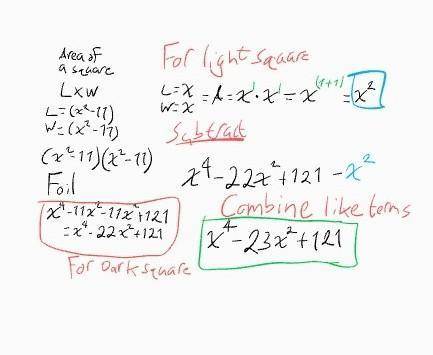 Area of
a square
L x W
L = (x²-11)
W = (x²-11)
(x²-11)(x²-11)
Foil
x⁴-11x²-11x²+121
= x⁴-22x²+121
For Dark square
For light square
L = x
W = x
= A = x¹ · x¹ = x⁽¹⁺¹⁾ = x²
Subtract
x⁴-22x²+121 -x²
Combine like terms
x⁴-23x²+121